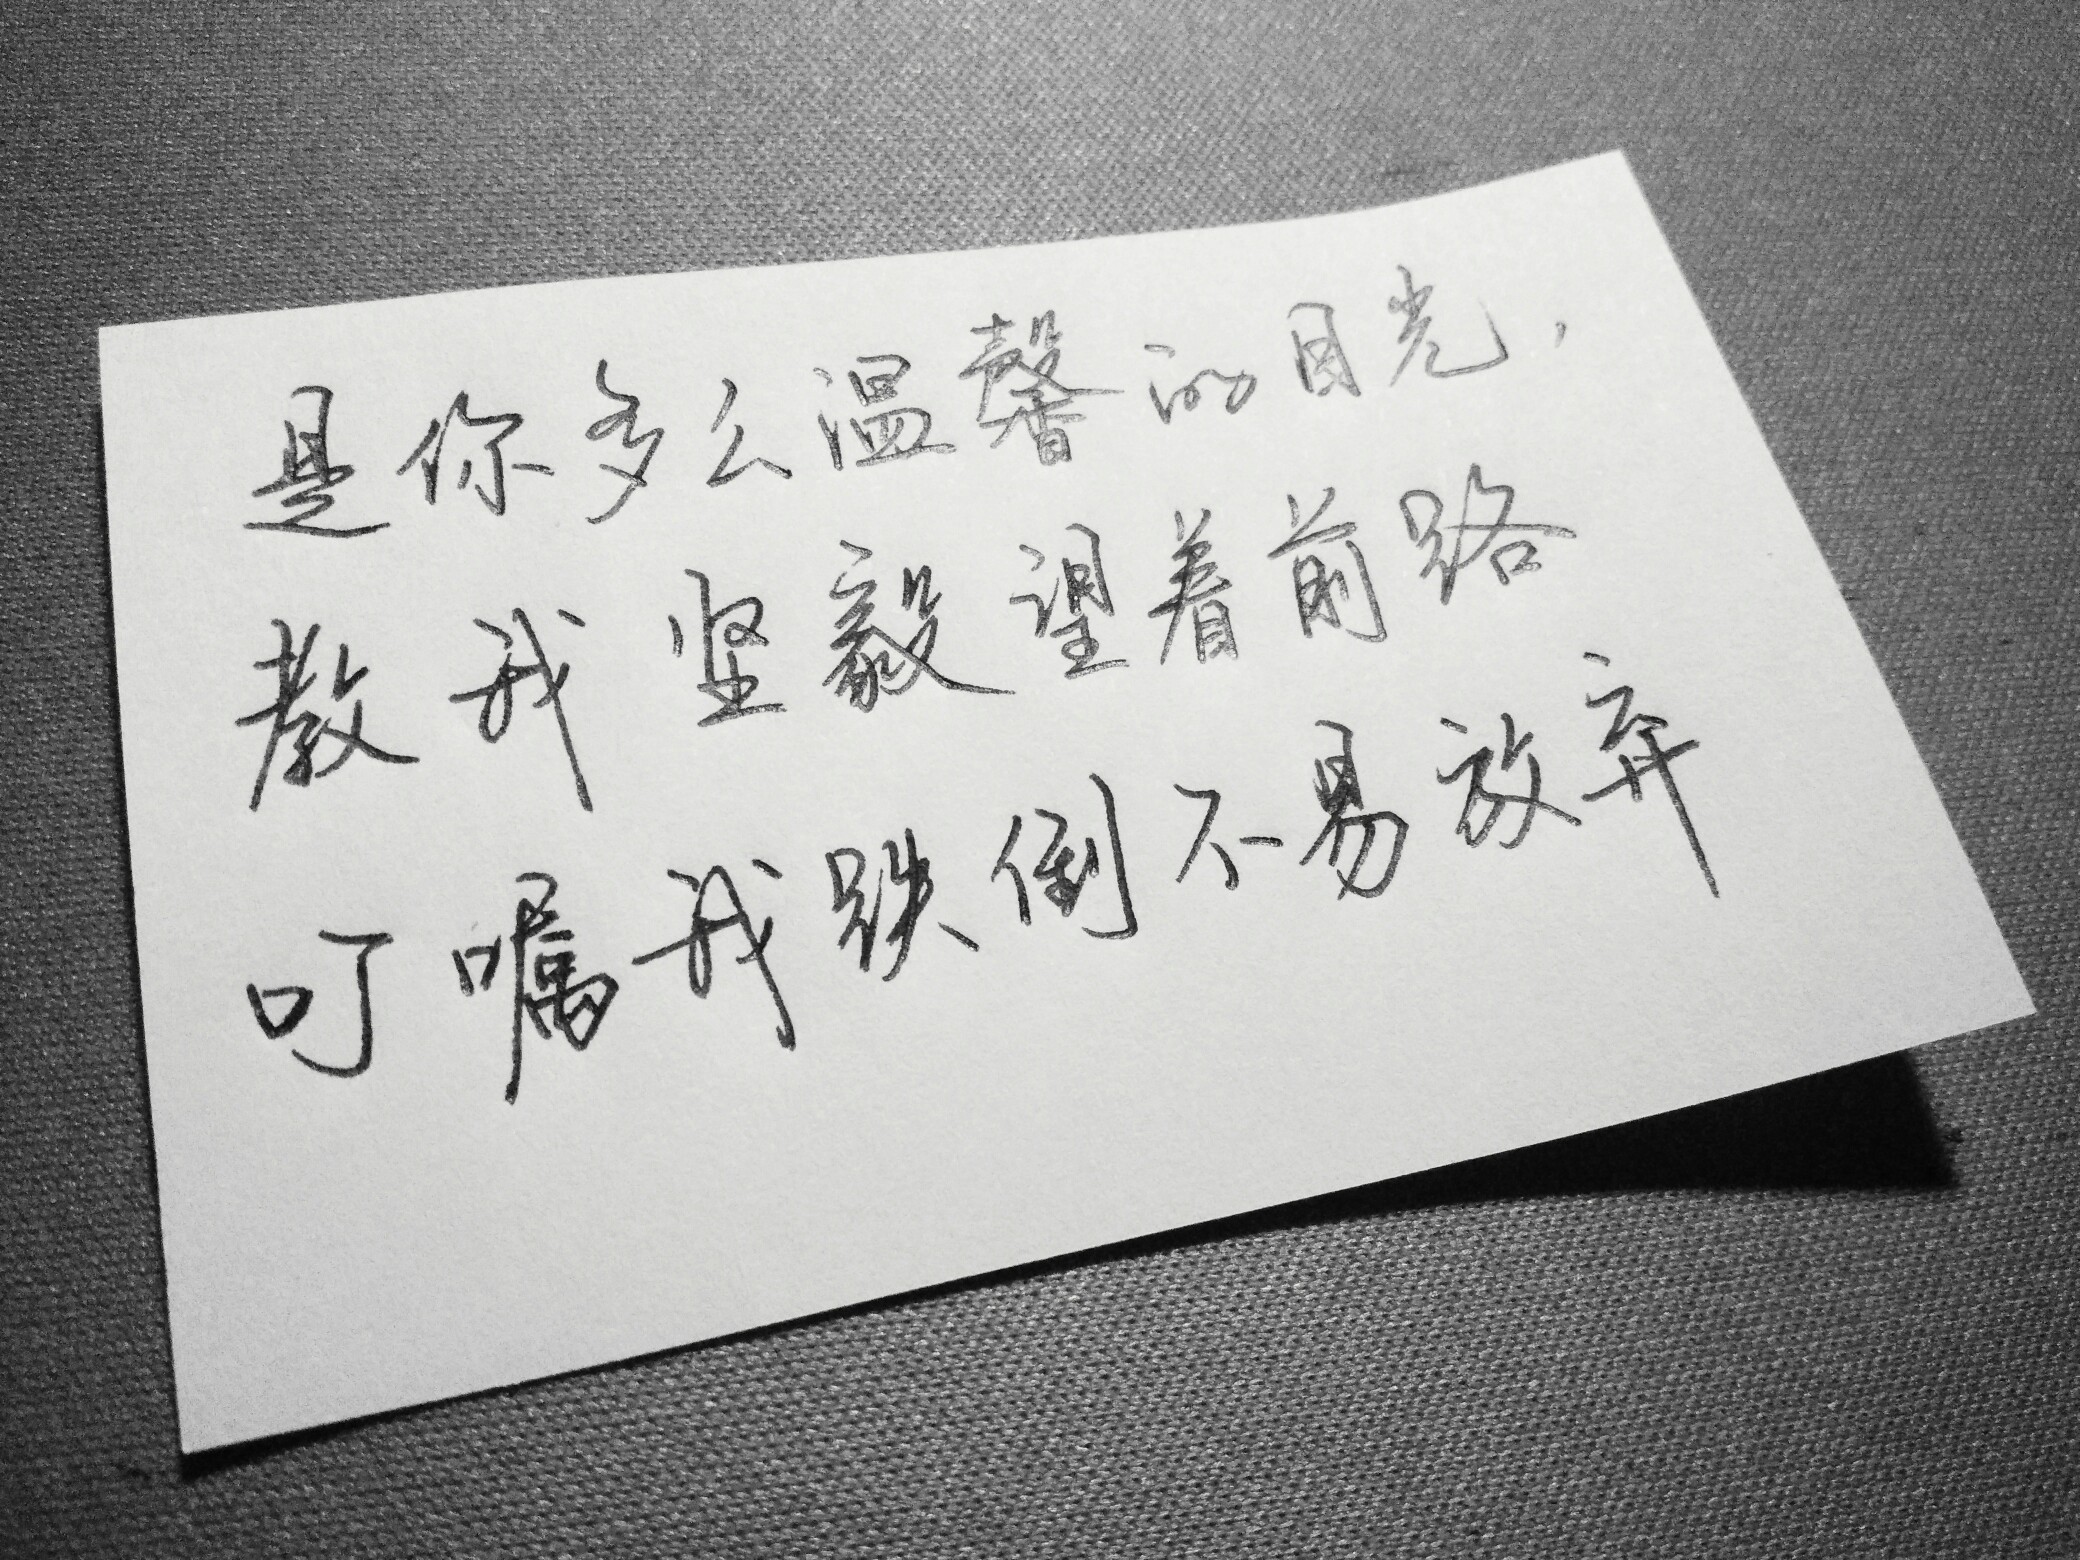 是你多么温馨的目光，
教我坚毅望着前路
叮嘱我跌倒不易放弃